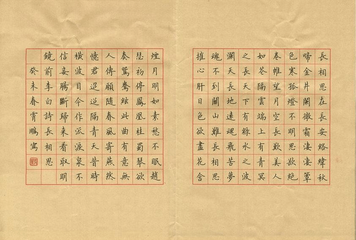 長相思在長安絡緯秋
啼金井闌微霜淒淒簟
色寒孤燈不明思欲絕
卷帷望月空長歎美人
如花隔雲端上有青冥
之長天下有綠水之波
瀾天長地遠魂飛苦夢
魂不到關山難長相思
摧心肝日色欲盡花含
煙月明如素愁不眠趙
瑟初停鳳凰柱蜀琴欲
奏鴛鴦絃此曲有意無
人傳願隨春風寄燕然
憶君迢迢隔青天昔時
橫波目今作流淚泉不
信妾腸斷歸來看取明
鏡前李白詩長相思
癸未春鵬寫